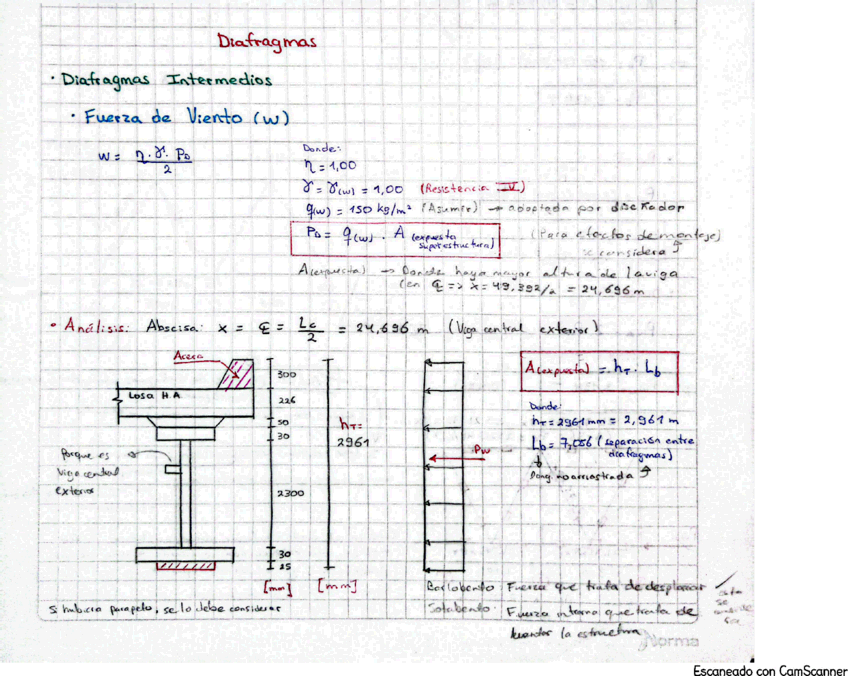 Diafragmas
· Diafragmas Intermedios
· Fuerza de Viento (w)
W = η · γ · PD / 2
Donde:
η = 1,00
γ = γ(w) = 1,00 (Resistencia IV)
q(w) = 150 kg/m² (Asumir) → adoptada por diseñador
PD = q(w) · A (expuesta superestructura)
(Para efectos de montaje) se considera ↑
A(expuesta) → Donde haya mayor altura de la viga
(en ℄ => x = 49,392/2 = 24,696 m
• Análisis: Abscisa: x = ℄ = Lc/2 = 24,696 m (Viga central exterior)
Acera
Losa H.A
300
226
50
30
2300
30
25
[mm]
hT =
2961
[mm]
Porque es
Viga central
exterior
Pw
A(expuesta) = hT · Lb
Donde:
hT = 2961 mm = 2,961 m
Lb = 7,056 (separación entre
diafragmas)
Long. no arriostrada ↑
Barlobento: Fuerza que trata de desplazar
Sotabento: Fuerza interna que trata de
levantar la estructura
esta
se
Si hubiera parapeto, se lo debe considerar
Norma
Escaneado con CamScanner